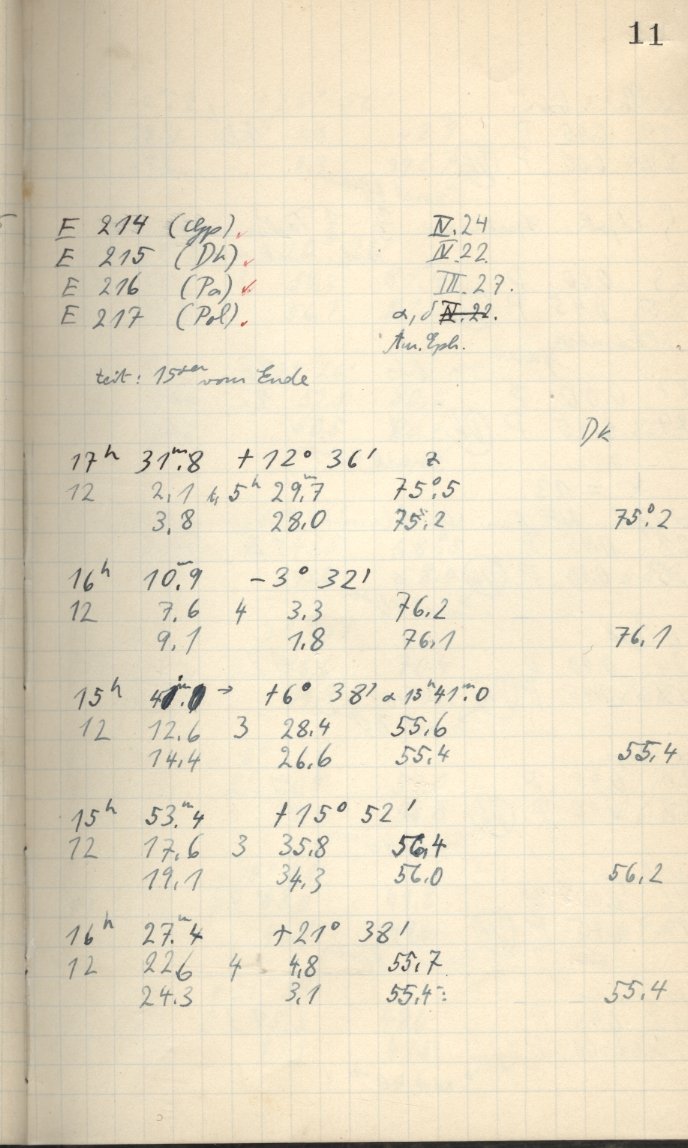 11
E 214 (Gyp). IV.24
E 215 (Dk) IV.22.
E 216 (Pa) III.27.
E 217 (Pol). α, δ IV.22.
Am. Eph.
zeit: 15 vom Ende
Dk
17h 31m.8 +12° 36' z
12 2,1 t, 5h 29m,7 75°.5
3,8 28,0 75,2 75°.2
16h 10m.9 -3° 32'
12 7,6 4 3,3 76,2
9,1 1,8 76,1 76,1
15h → +6° 38' α 15h 41m.0
12 12,6 3 28,4 55,6
14,4 26,6 55,4 55,4
15h 53m.4 +15° 52'
12 17,6 3 35,8 56,4
19,1 34,3 56,0 56,2
16h 27m.4 +21° 38'
12 22,6 4 4,8 55,7
24,3 3,1 55,4: 55,4